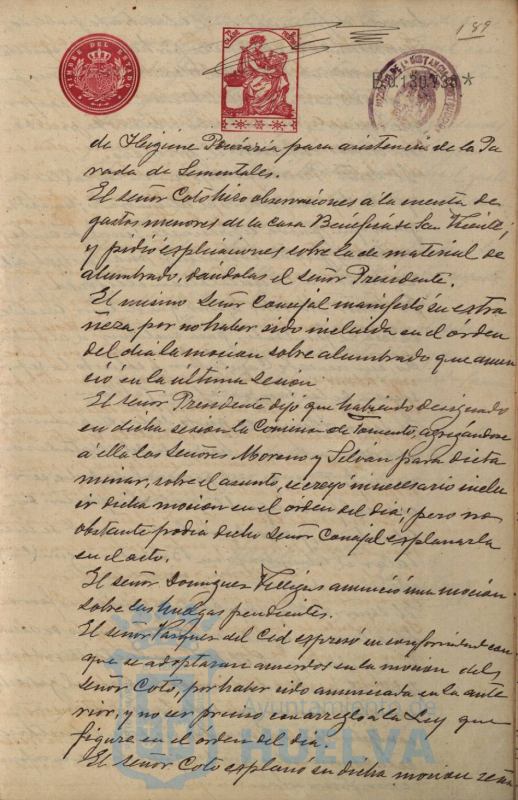 189
TIMBRE DEL ESTADO
B.0.130.938*
de Higiene Pecuaria para asistencia de la Pa
rada de Sementales.
El señor Coto hizo observaciones á la cuenta de
gastos menores de la casa Benéfica de San Vicente,
y pidió esplicaciones sobre la de material de
alumbrado, dándolas el señor Presidente.
El mismo señor Concejal manifestó su estra
ñeza por no haber sido incluida en el órden
del dia la mocion sobre alumbrado que anun
ció en la última sesion
El señor Presidente dijo que habiendo designado
en dicha sesion la Comision de Fomento, agregándose
á ella los Señores Moreno y Silván para dicta
minar, sobre el asunto, se creyó innecesario inclu
ir dicha mocion en el órden del dia; pero no
obstante podia dicho señor Concejal esplanarla
en el acto.
El señor Dominguez anunció una mocion
sobre las huelgas pendientes.
El señor Vazquez del Cid espresó su conformidad con
que se adoptaran acuerdos en la mocion del
señor Coto, por haber sido anunciada en la ante
rior, y no ser preciso con arreglo á la Ley que
figure en el órden del dia.
El señor Coto esplanó su dicha mocion
Ayuntamiento de
HUELVA